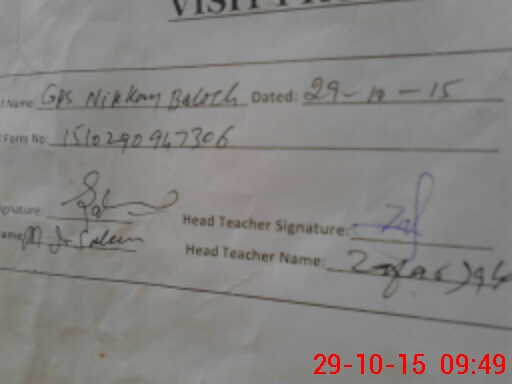 VISIT
Name: GPS Nikkay Baloch Dated: 29-10-15
Form No: 1510290947306
gnature: Head Teacher Signature: Zaf
ame: M Saleem Head Teacher Name:
29-10-15 09:49